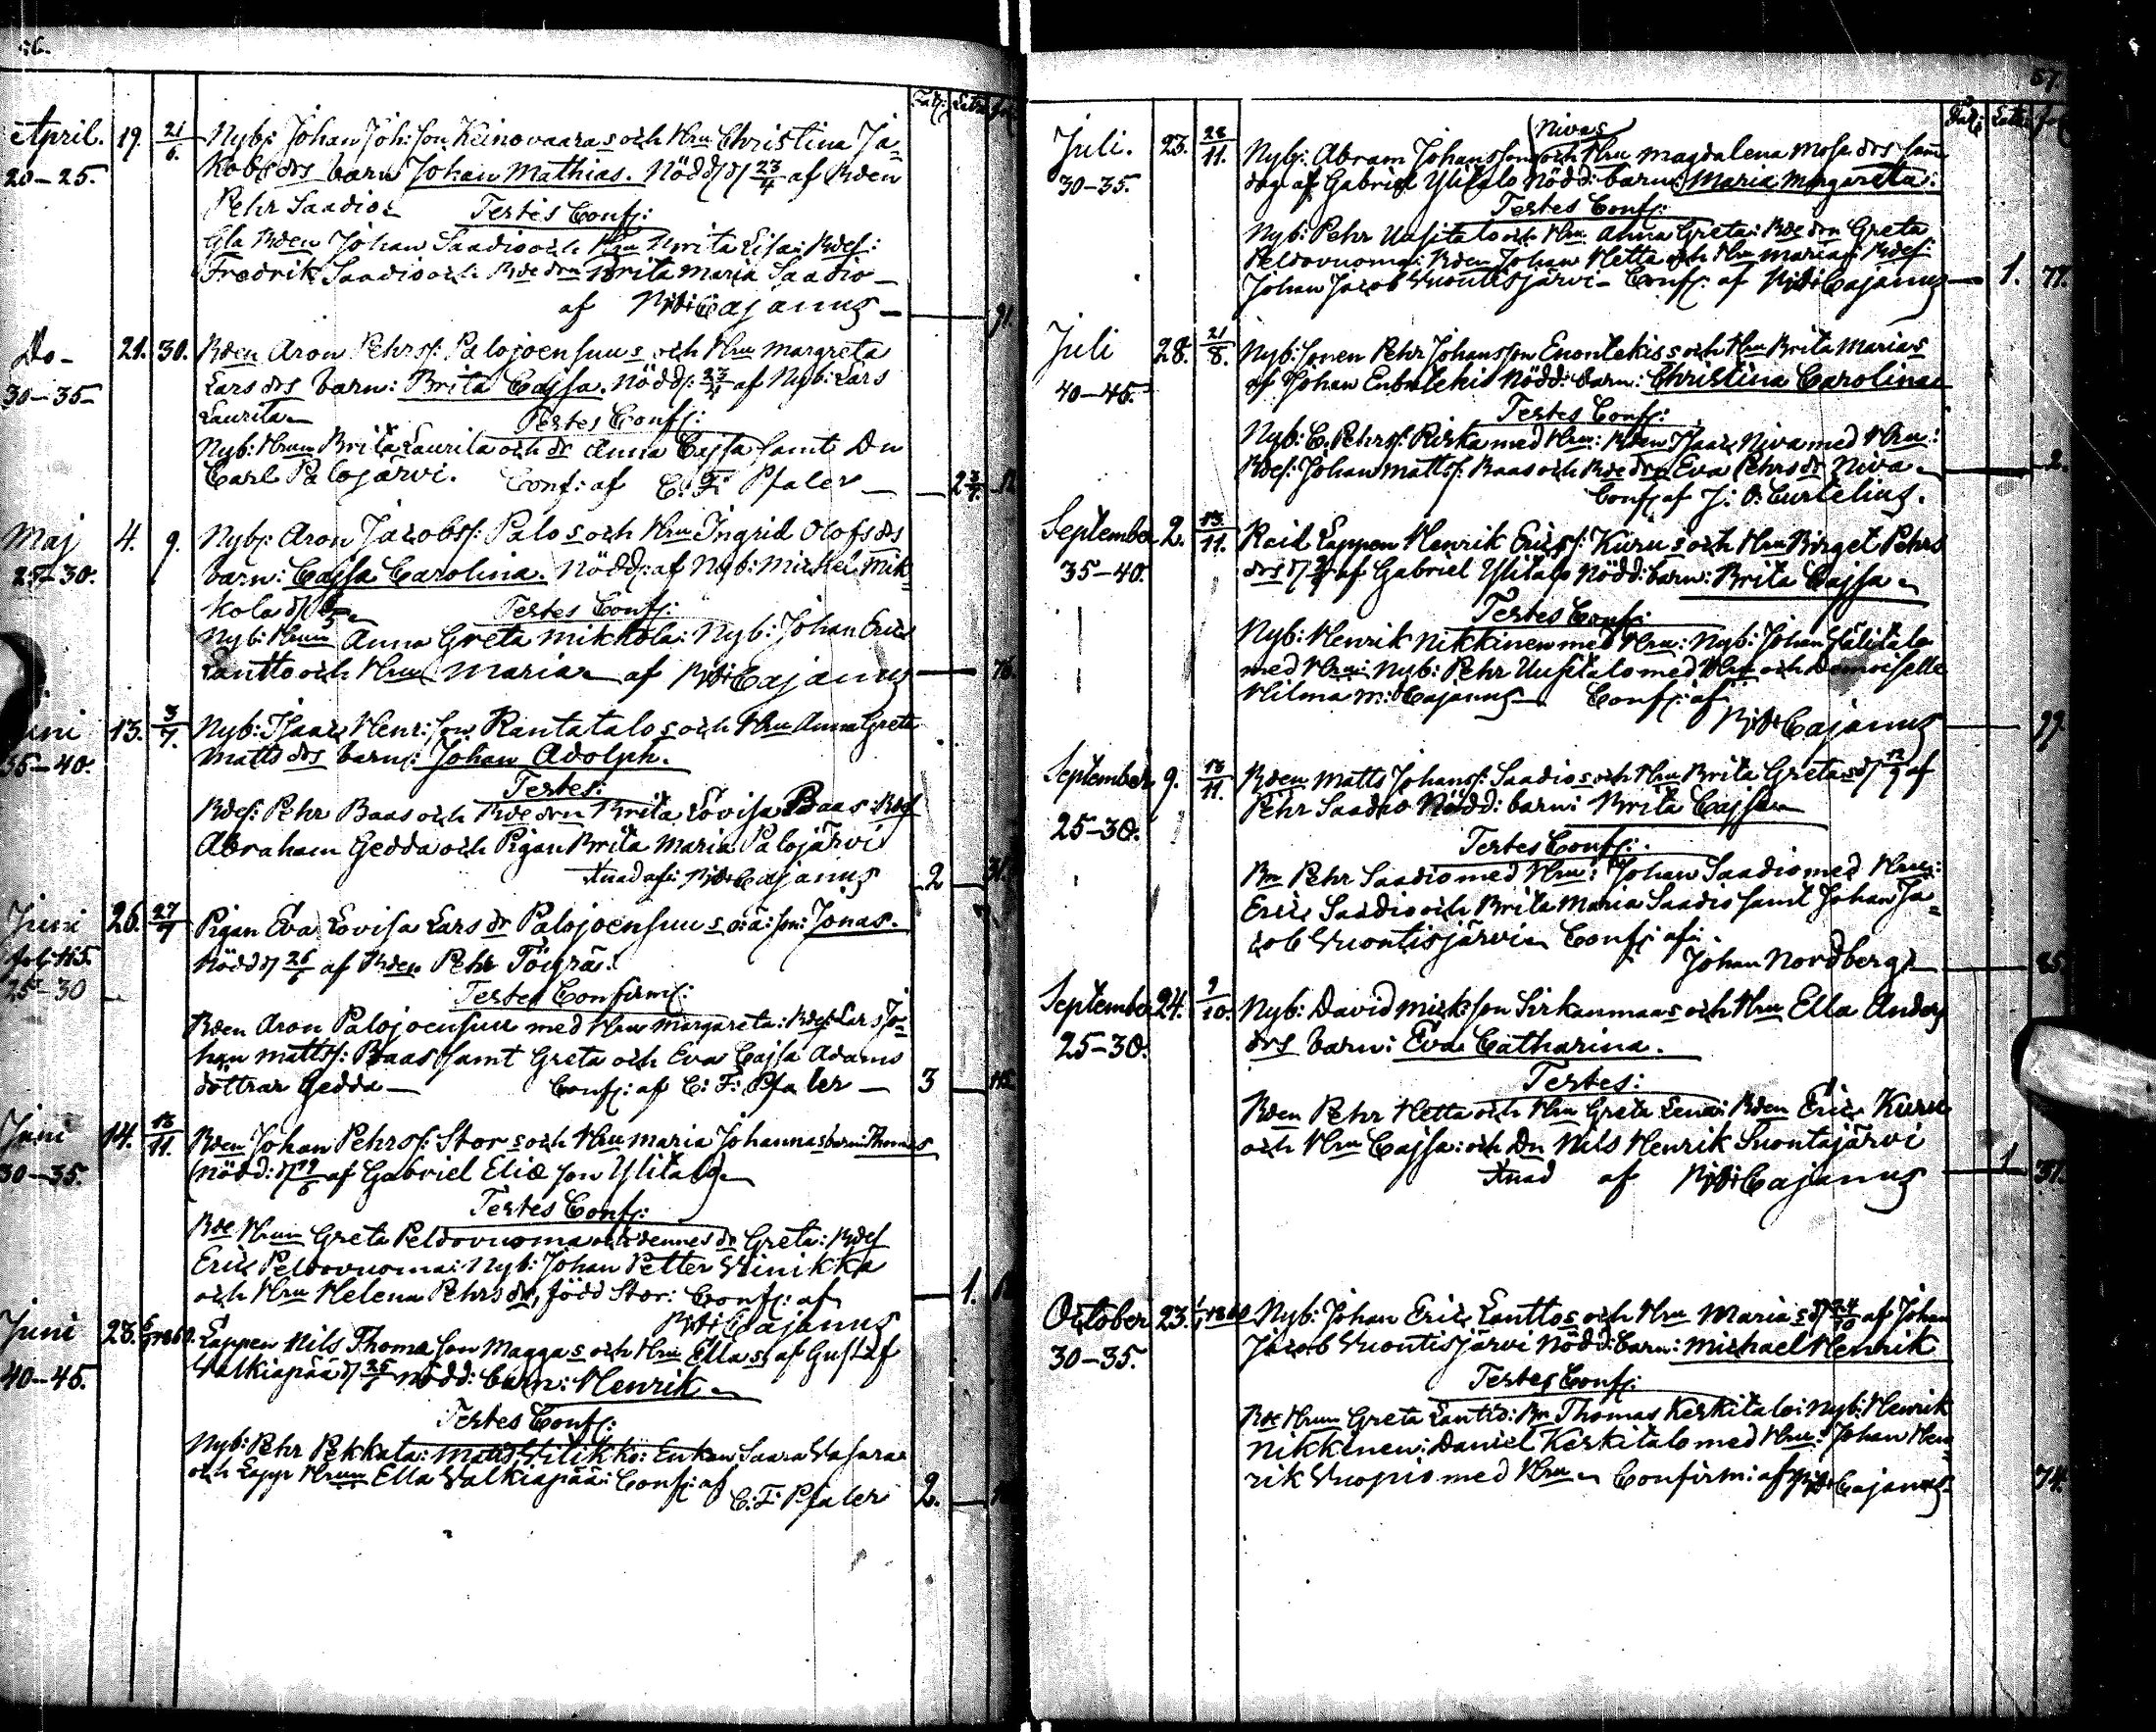 56.
April. 19. 21/6. Nyb: Johan Joh:son Keinovaaras och Hru Christina Ja=
20-25. kobs drs barn Johan Mathias. Nödd d 23/4 af Bden
Pehr Saadio. Testes Conf:
Gla Bden Johan Saadio och Hru Brita Lisa: Bdes:
Fredrik Saadio och Bdedrn Brita Maria Saadio
af Cajanus 91.
Do- 21. 30. Bden Aron Pehrs: Palojoensuus och Hru Margreta
30-35- Lars drs barn: Brita Cajsa. Nödd: 23/4 af Nyb: Lars
Laurila Testes Conf:
Nyb: Hrun Brita Laurila och dr Anna Cajsa samt Dn
Carl Palojärvi. Conf: af C. F: Pfaler
Maj 4. 9. Nyb: Aron Jacobs: Palos och Hru Ingrid Olofs drs
25-30. barn: Cajsa Carolina. Nödd: af Nyb: Michel Mik
kola d Testes Conf:
Nyb: Hrun Anna Greta Mikkola: Nyb: Johan Eric
Lantto och Hru Maria af Cajanus 76.
Juni 13. 3/7. Nyb: Isaac Henr:son Rantatalos och Hru Anna Greta
35-40. Matts drs barn: Johan Adolph.
Testes:
Bdes: Pehr Baas och Bdedrn Brita Lovisa Baas: Bdes
Abraham Gedda och Pigan Brita Maria Palojärvi
af: Cajanus 2 31.
Juni 26. 27/7 Pigan Eva Lovisa Lars dr Palojoensuus o:ä: son: Jonas.
fol: 115. Nödd d 26/6 af Bden Pehr Töigräs.
25-30
Testes Confirm:
Bden Aron Palojoensuu med Hru Margareta: Bdes: Lars Jo=
han Matts: Baas samt Greta och Eva Cajsa Adams
döttrar Gedda Conf: af C: F: Pfaler 3 115
Juni 14. 13/11. Bden Johan Pehrss: Stors och Hru Maria Johannas barn: Thomas
30-35. Nödd: d 19/6 af Gabriel Elie son Ylitalo
Testes Conf:
Bde Hrun Greta Peldovuoma och dennes dr Greta: Bdes
Eric Peldovuoma: Nyb: Johan Petter Vinikka
och Hru Helena Pehrs dr, född Stor: Conf: af 1.
Cajanus
Juni 23. 1860. Lappen Nils Thomason Maggas och Hru Ellas af Gustaf
40-45. Valkiapää d 25/6 nödd: barn: Henrik
Testes Conf:
Nyb: Pehr Pekkala: Matts Vilikko: Enkan Saara Vasara
och Lapp Hrun Ella Valkiapää: Conf: af
C. F. Pfaler 2.
57.
Juli. 23. 28/11. Nyb: Abram Johansson Nivas och Hru Magdalena Mose drs sam
30-35. dag af Gabriel Ylitalo Nödd: barn: Maria Margareta:
Testes Conf:
Nyb: Pehr Uusitalo och Hru Anna Greta: Bdedrn Greta
Peldovuoma: Bden Johan Hetta och Hru Maria: Bdes:
Johan Jacob Vuontisjärvi Conf: af Cajanus 1. 77.
Juli 28. 21/8. Nyb: Sonen Pehr Johansson Enontekis och Hru Brita Marias
40-45. af Johan Enontekis Nödd: barn: Christina Carolina
Testes Conf:
Nyb: E. Pehrss: Kirka med Hru: Bden Isaac Niva med Hru:
Bdes: Johan Matts: Baas och Bdedrn Eva Pehrs dr Niva 2.
Conf: af J: O: Curtelius.
September 2. 13/11. Raid Lappen Henrik Erics: Kurus och Hru Birget Pehrs
35-40. drs d af Gabriel Ylitalo Nödd: barn: Brita Cajsa
Testes Conf:
Nyb: Henrik Nikkinen med Hru: Nyb: Johan Välitalo
med Hru: Nyb: Pehr Uusitalo med Hru och Demoiselle
Hilma M: Cajanus Conf: af
Cajanus 99.
September 9. 13/11. Bden Matts Johans: Saadios och Hru Brita Gretas d 12/9 af
25-30. Pehr Saadio Nödd: barn: Brita Cajsa
Testes Conf:
Bn Pehr Saadio med Hru: Johan Saadio med Hru:
Eric Saadio och Brita Maria Saadio samt Johan Ja=
cob Vuontisjärvi Conf: af:
Johan Nordberg 85.
September 24. 9/10. Nyb: David Mick:son Sirkanmaas och Hru Ella Anders
25-30. drs barn: Eva Catharina.
Testes:
Bden Pehr Hetta och Hru Greta Lena: Bden Eric Kuru
och Hru Cajsa: och Dn Nils Henrik Suontajärvi
af Cajanus 1 37.
October 23. 1860 Nyb: Johan Eric Lanttos och Hru Marias d 24/10 af Johan
30-35. Jacob Vuontisjärvi Nödd: barn: Michael Henrik
Testes Conf:
Bde Hrun Greta Lantto: Bn Thomas Kerkitalo: Nyb: Henrik
Nikkinen: Daniel Kerkitalo med Hru: Johan Hen=
rik Vuopio med Hru Confirm: af Cajanus 74.